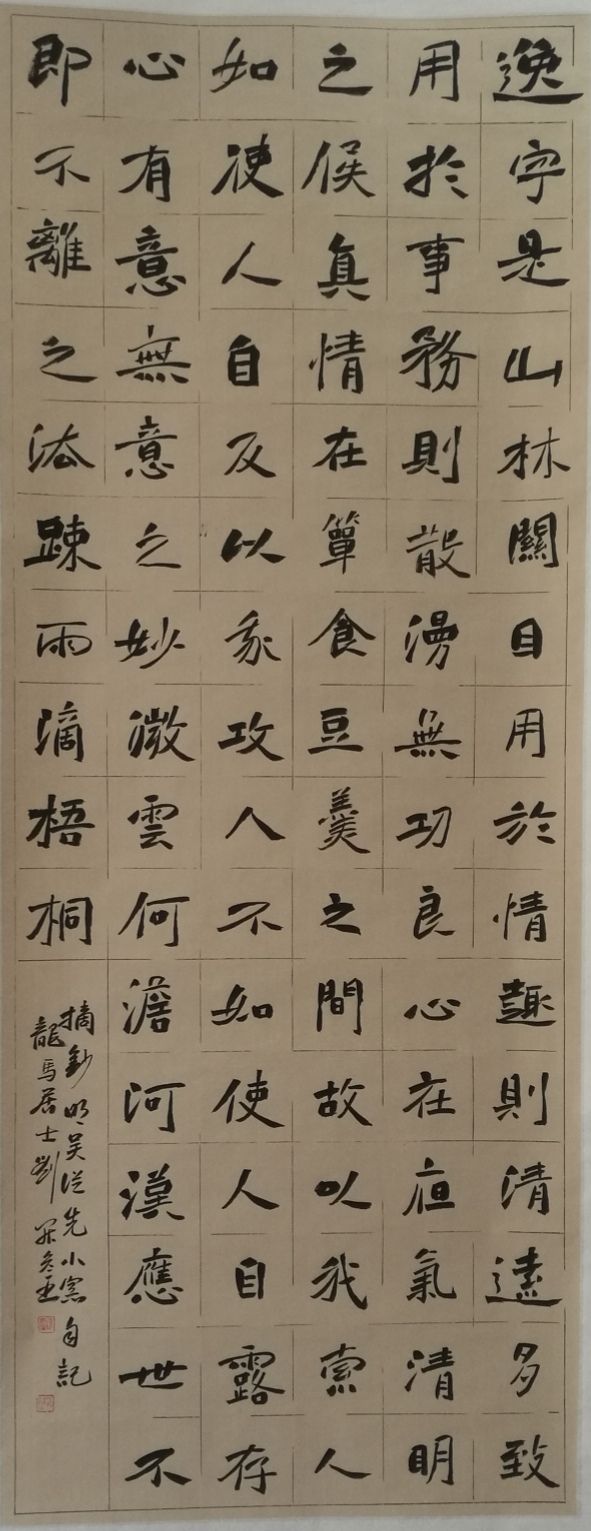 逸字是山林關目用於情趣則清遠多致
用於事務則散漫無功良心在亱氣清明
之候真情在簞食豆羹之間故以我索人
如使人自反以我攻人不如使人自露存
心有意無意之妙微雲何澹河漢應世不
即不離之法踈雨滴梧桐
摘鈔明吴從先小窗自記
龍馬居士劉